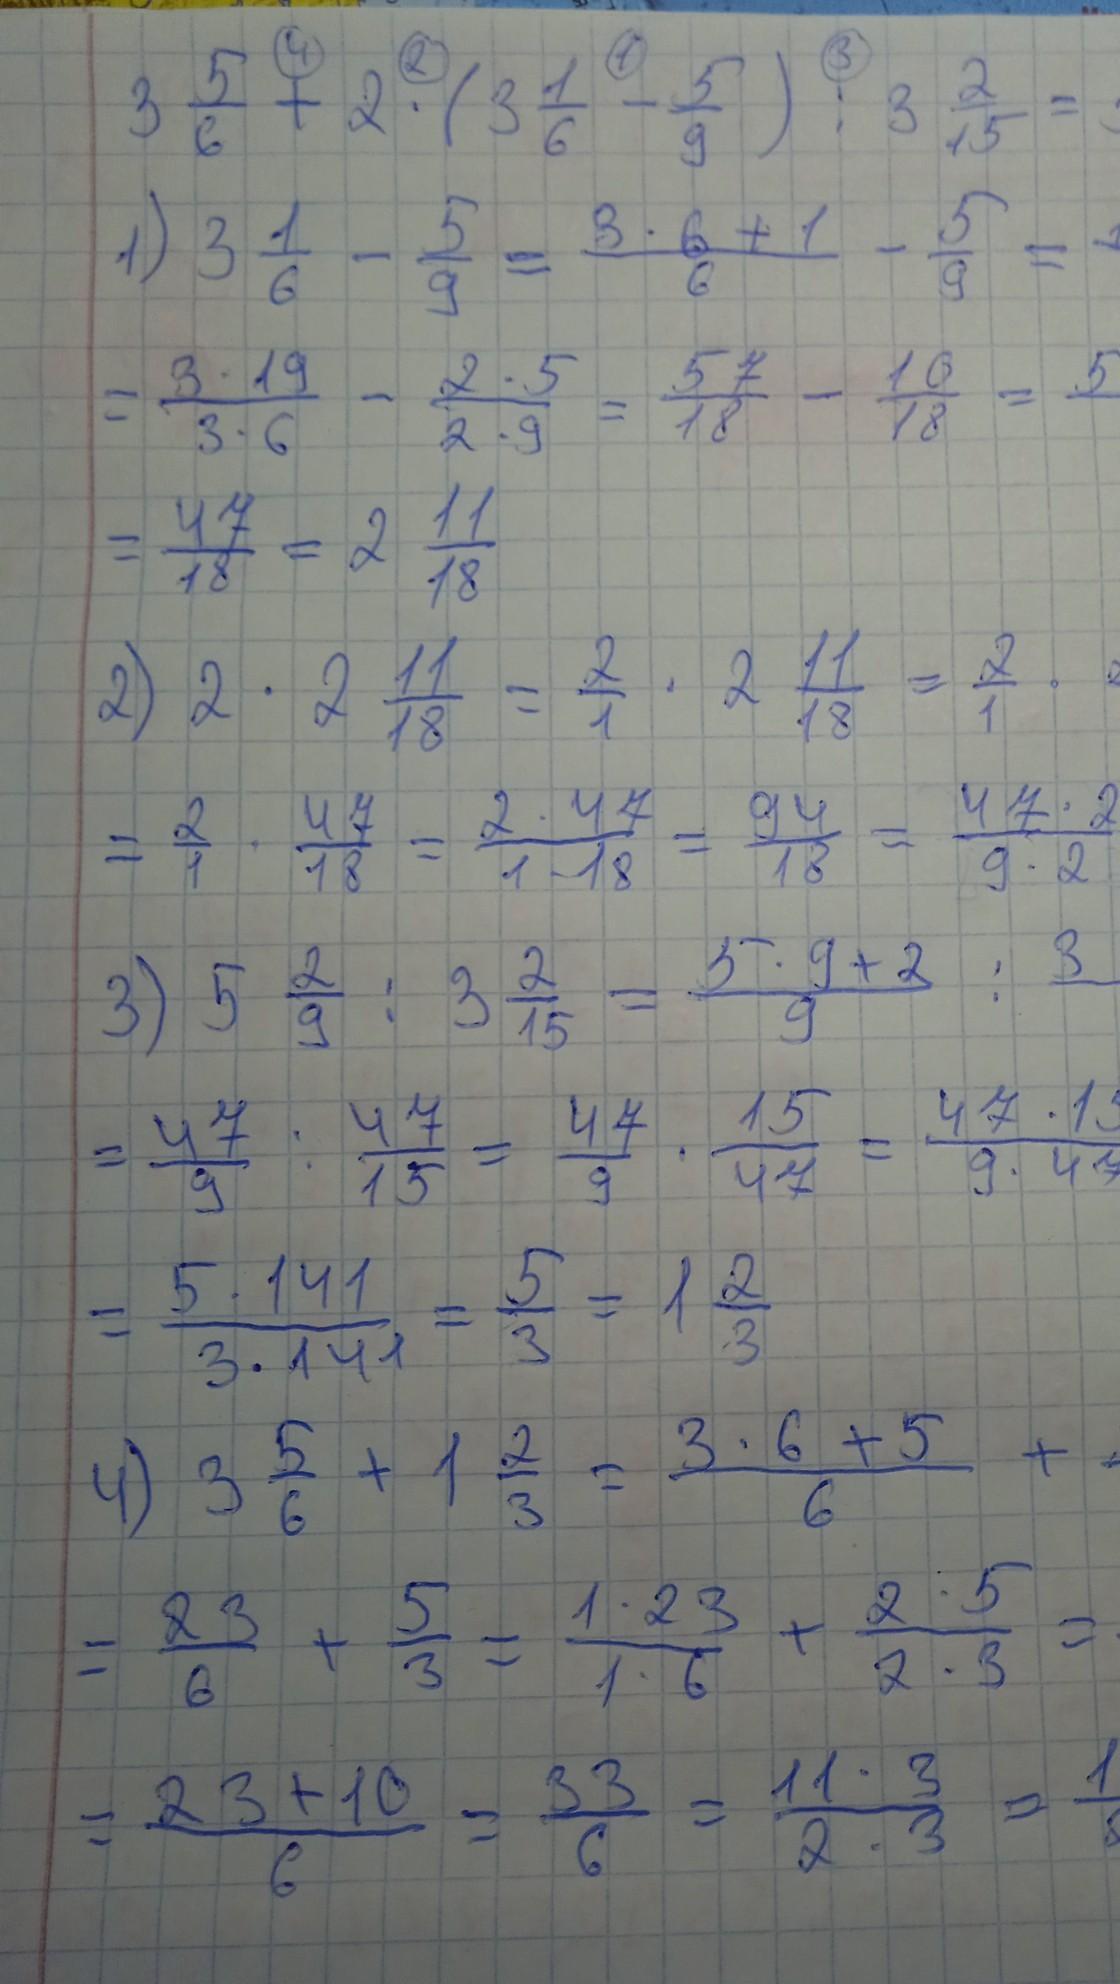 3 5/6 + 2 · (3 1/6 - 5/9) : 3 2/15 =
④ ② ① ③
1) 3 1/6 - 5/9 = (3·6+1)/6 - 5/9 =
= (3·19)/(3·6) - (2·5)/(2·9) = 57/18 - 10/18 =
= 47/18 = 2 11/18
2) 2 · 2 11/18 = 2/1 · 2 11/18 = 2/1 ·
= 2/1 · 47/18 = (2·47)/(1·18) = 94/18 = (47·2)/(9·2)
3) 5 2/9 : 3 2/15 = (5·9+2)/9 :
= 47/9 : 47/15 = 47/9 · 15/47 = (47·15)/(9·47)
= (5·141)/(3·141) = 5/3 = 1 2/3
4) 3 5/6 + 1 2/3 = (3·6+5)/6 +
= 23/6 + 5/3 = (1·23)/(1·6) + (2·5)/(2·3) =
= (23+10)/6 = 33/6 = (11·3)/(2·3) =